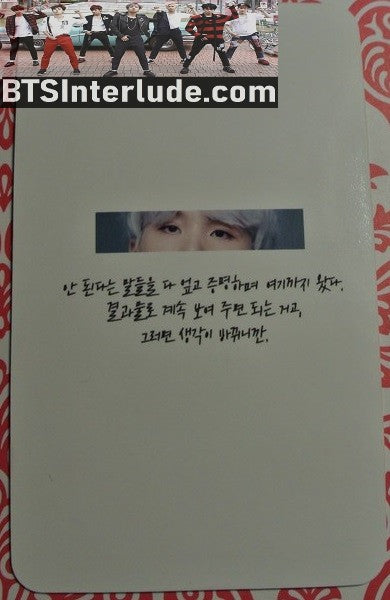 BTSInterlude.com
안 된다는 말들을 다 엎고 증명하며 여기까지 왔다.
결과물로 계속 보여 주면 되는 거고,
그러면 생각이 바뀌니깐.